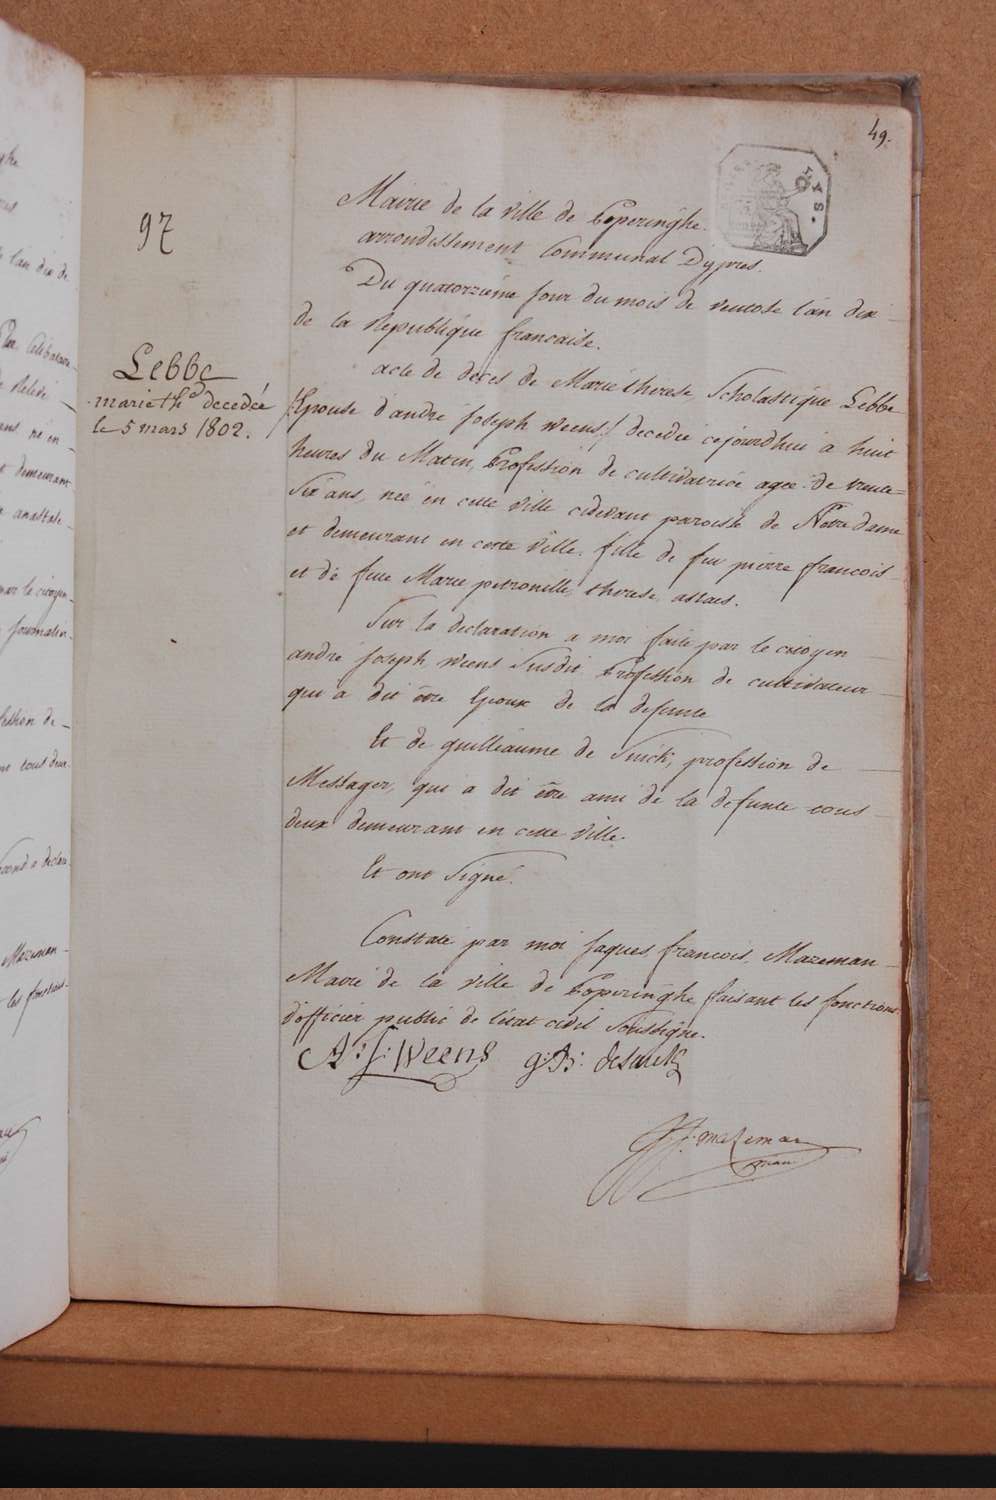 49.
Mairie de la ville de Poperinghe.
arrondissement Communal Dypres.
97
Du quatorzieme jour du mois de ventose l'an dix
de la Republique francaise.
Lebbe
marie thd decedée
le 5 mars 1802.
acte de deces de Marie therese Scholastique Lebbe
(Epouse d'andré joseph weens) decedée cejourdhui a huit
heures du Matin, Profession de cultivatrice agee de trente=
six ans, née en cette ville cidevant paroisse de Notre dame
et demeurant en cette ville. fille de feu pierre francois
et de feue Marie petronille therese assaes.
Sur la declaration a moi faite par le citoyen
andré joseph weens Susdit Profession de cultivateur
qui a dit être Epoux de la defunte
Et de guilleaume de Suick, profession de
Messager, qui a dit être ami de la defunte tous
deux demeurant en cette ville.
Et ont Signé.
Constaté par moi Jaques francois Mazeman
Maire de la ville de Poperinghe faisant les fonctions
d'officier public de l'état civil Soussigné.
A: J: Weens g: B: desuick
J. f. mazeman